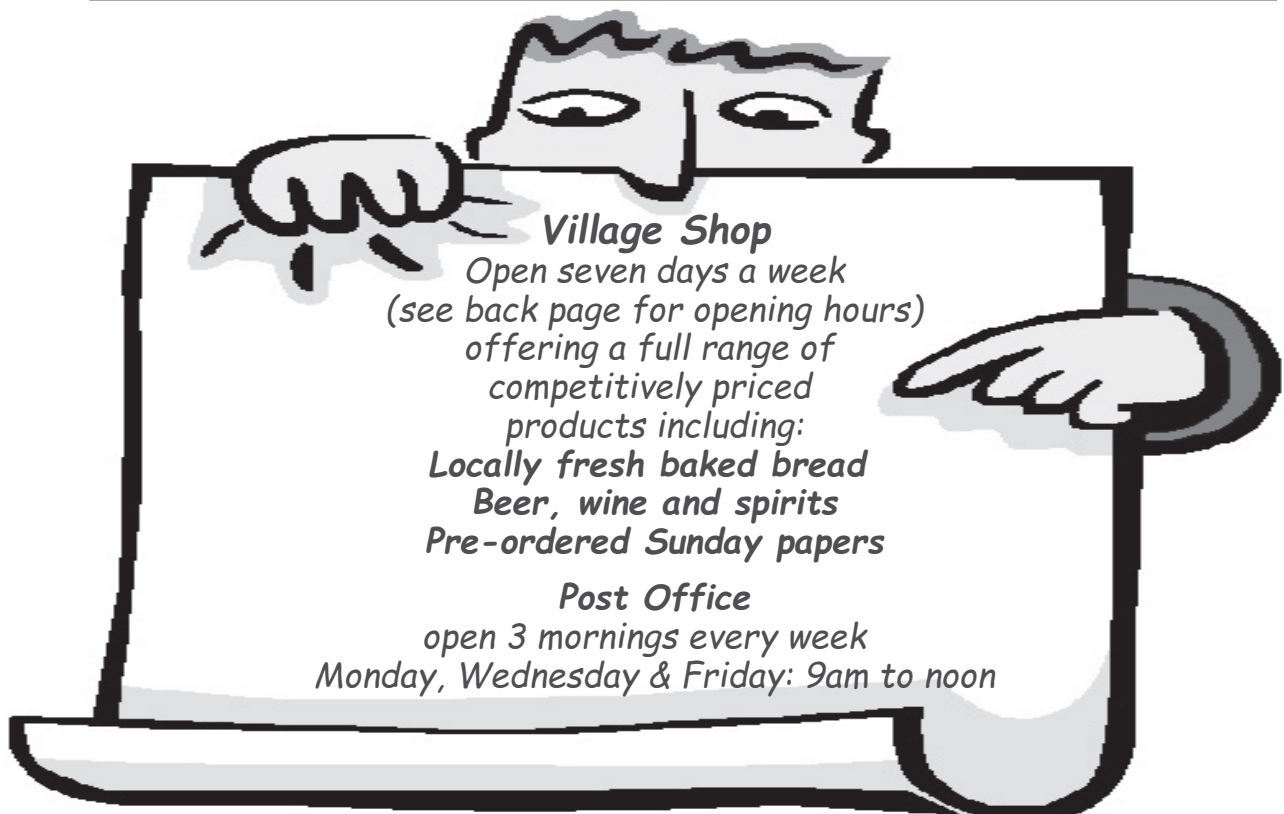 Village Shop
Open seven days a week
(see back page for opening hours)
offering a full range of
competitively priced
products including:
Locally fresh baked bread
Beer, wine and spirits
Pre-ordered Sunday papers
Post Office
open 3 mornings every week
Monday, Wednesday & Friday: 9am to noon